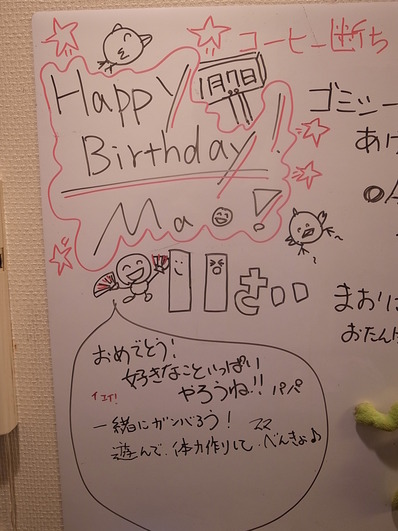 コーヒー断ち
Happy
1月7日
Birthday!
Mao!
ゴミシー
あけ
11さい
まおりに
おたんけ
おめでとう!
好きなこといっぱい
やろうね!! パパ
イエイ!
一緒にガンバろう! ママ
遊んで、体力作りして、べんきょ♪